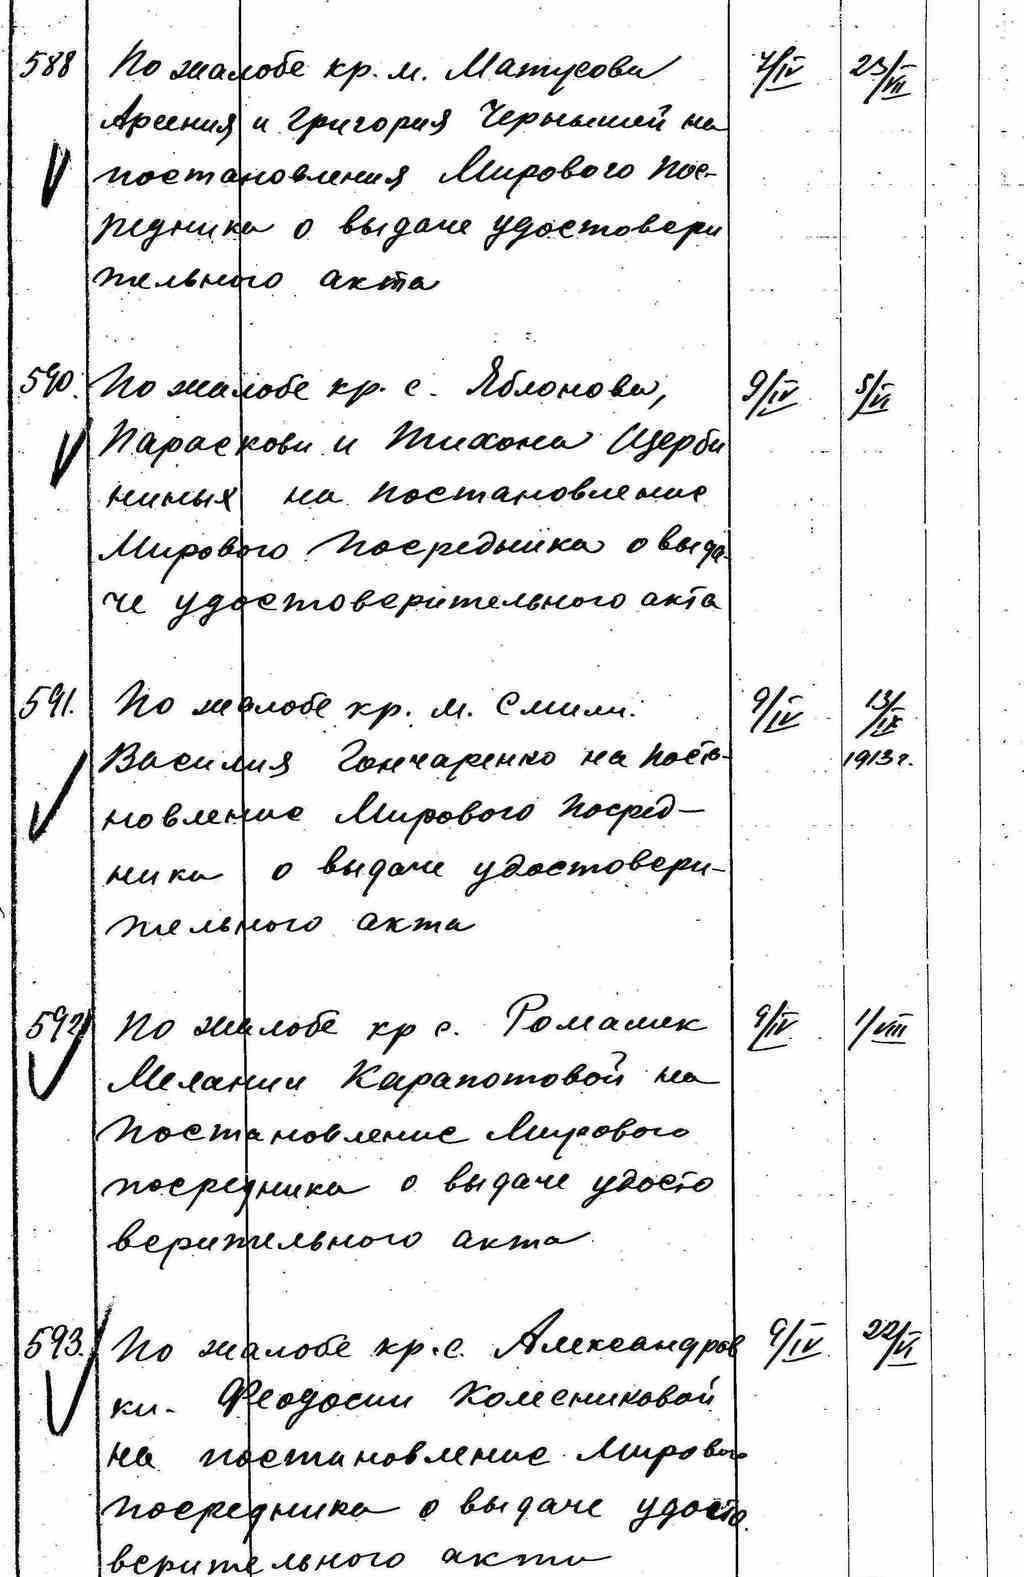 588 По жалобе кр. м. Матусова 7/IV 23/VII
Арсения и Григория Чернышей на
постановления Мирового Пос-
редника о выдаче удостовери
тельного акта
590. По жалобе кр. с. Яблонова, 9/IV 5/VI
Параскови и Тихона Щерби
ниных на постановление
Мирового Посредника о выда-
че удостоверительного акта
591. По жалобе кр. м. Смилы. 9/IV 13/IX
Василия Гончаренко на поста- 1913 г.
новление Мирового Посред-
ника о выдаче удостовери-
тельного акта
592 По жалобе кр с. Ромашек 9/IV 1/VIII
Мелании Карапотовой на
постановление Мирового
посредника о выдаче удосто
верительного акта
593. По жалобе кр. с. Александров 9/IV 22/VI
ки. Феодосии Колесниковой
на постановление Мирового
посредника о выдаче удосто
верительного акта